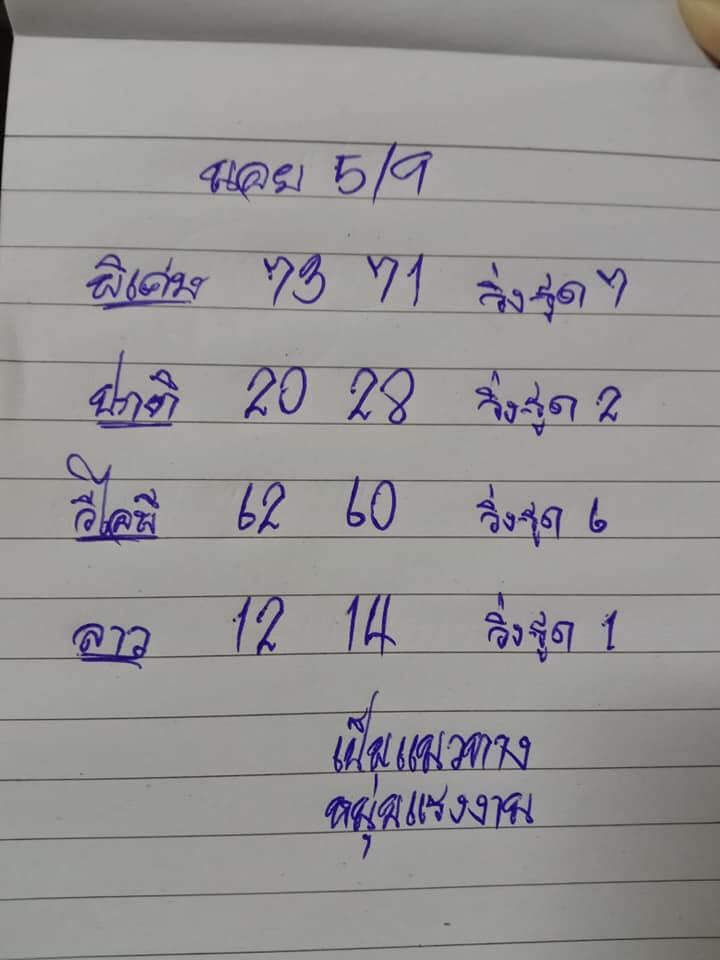 นอย 5/9
พิเศษ 73 71 วิ่งรูด 7
ปกติ 20 28 วิ่งรูด 2
วีไอพี 62 60 วิ่งรูด 6
ลาว 12 14 วิ่งรูด 1
เป็นแนวทาง
หนุ่มแรงงาน